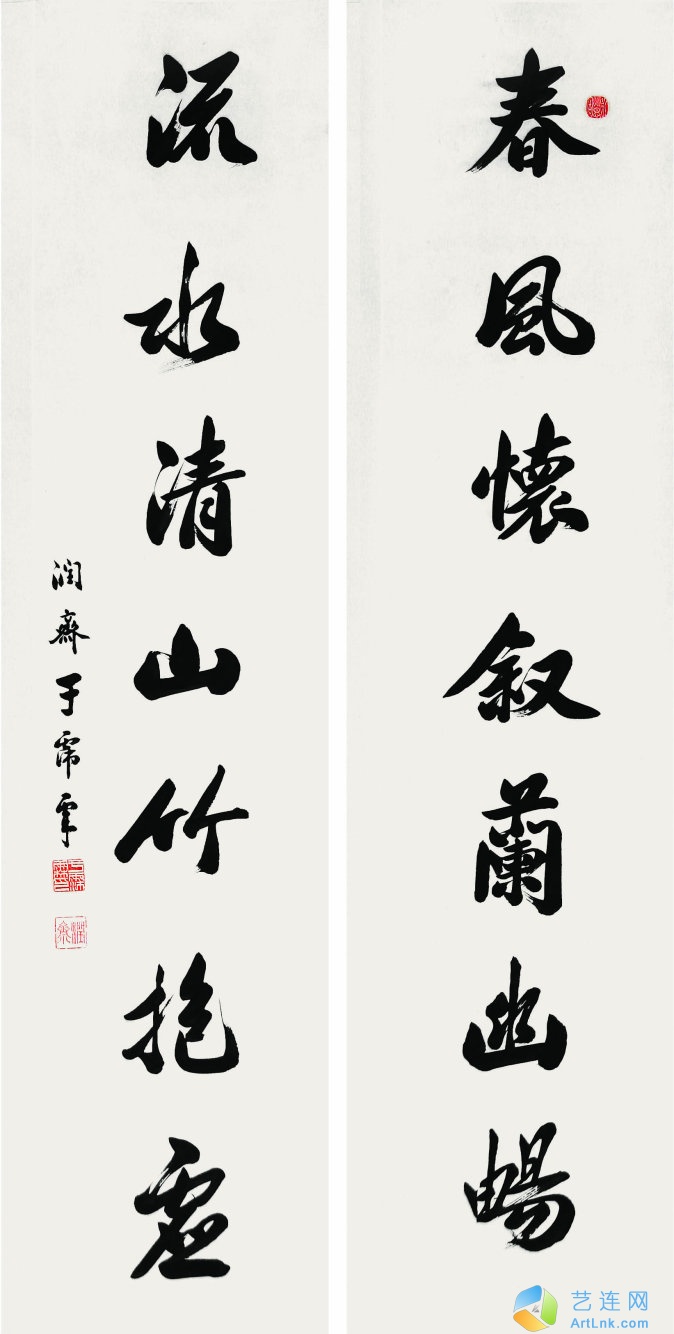 春風懷叙蘭幽暢
流水清山竹抱虛
润齋于常軍
艺连网
ArtLnk.com